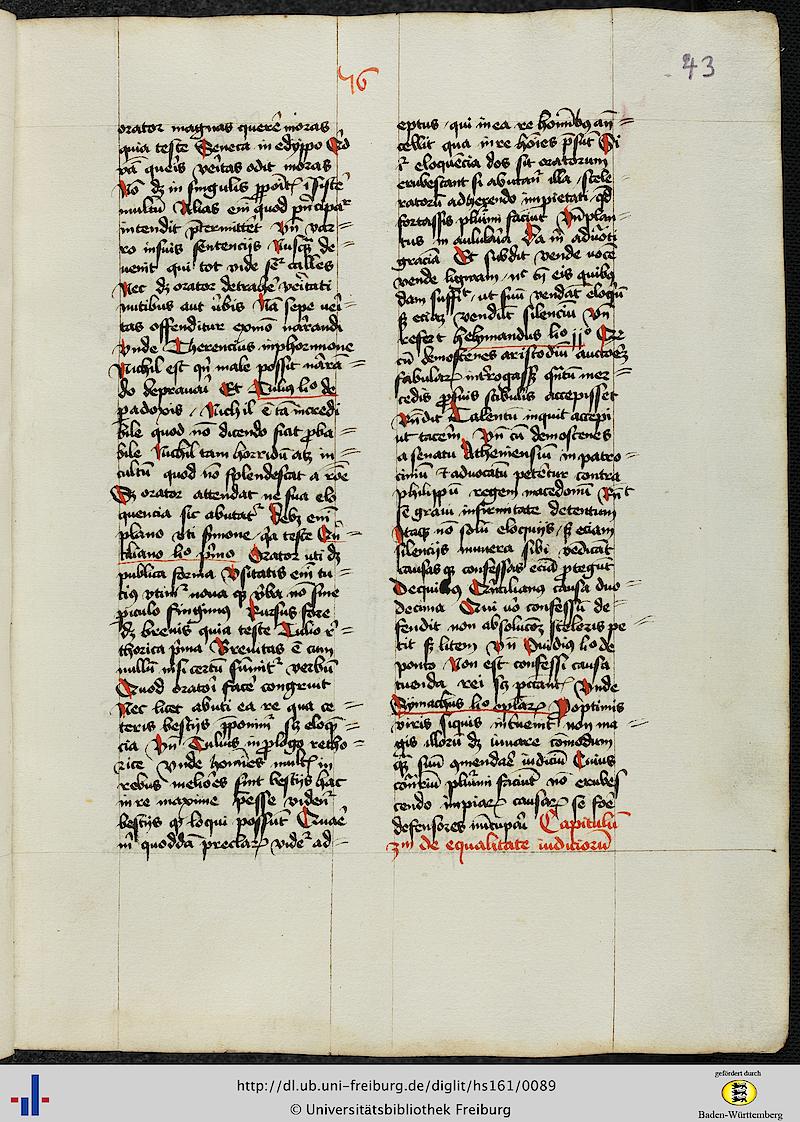 76
43
orator magnas querē moras
quia teste Seneca in edyppo
queis veritas odit moras
No dz in singulis
multū Alias eni quod principar
intendit pretermittet Vn var-
ro in suis sentencijs Nusqz de-
uenit qui tot vide calles
Nec dz orator detrahē veritati
nutibus aut verbis Nā sepe veri-
tas offenditur eximo narrandi
Vnde Therencius in phormione
Nichil est qn male possit narrā-
do deprauari Et Tulius lio de
padoxis Nichil ē tā incredi
bile quod nō dicendo fiat proba-
bile Nichil tam horridū atz in-
cultū quod nō splendescat a roē
Sz orator attendat ne sua elo
quencia sic abutatr Vebz eni
plano uti sermone qa teste Qn-
tiliano lio primo Orator uti dz
publica forma Vsitatis eni tu-
tius utimr noua qz vba nō sine
piculo fingimus Rursus fore
dz breuis quia teste Tulio in
thorica prima Breuitas ē cum
nullū nisi certū sumitr verbū
Quod oratori facē congruit
Nec licet abuti ea re qua ce-
teris bestijs pponimr sz eloqn-
cia Vn Tulius in prologo retho-
rice Vnde homines multis in
rebus meliores sint bestijs hac
in re maxime pesse videntr
bestijs qz loqui possūt Quaē
m quoddā preclarz videtr ad-
eptus qui in ea re homibus an-
tellit qua in re hoies psūt Si
eloquēcia dos sit oratorum
erubescant si abutantr illa scele-
ratorū adherendo impietati qd
fortassis plurimi faciūt Vn plau-
tus in aulularia
graciā Et subdit vende vocē
vende linguam
dam suffic ut suū vendat eloqū
sz eciaz vendit silenciū Vn
refert helymandus lio ijo
cū demostenes aristodiū auctorez
fabularz interrogassz qntū mer-
cedis pro suis fabulis accepisset
Rndit Talentū inquit accepi
ut tacerem Vn cū demostenes
a senatu Atheniensiū in patro-
ciniū et aduocatū peteretur contra
philippū regem macedonū
se graui infirmitate detentum
Itaqz nō solū eloquijs sz eciam
silencijs munera sibi vēdicat
causas qz confessas eciā protegūt
De quibus Qintilianus causa duo-
decima Qui vo confessū de-
fendit non absolucōz sceleris pe-
tit sz litem Vn Ouidius lio de
ponto Non est confessi causa
tuenda rei sz pctantr Vnde
Symachus lio eplarz Ab optimis
viris siquis inueniet non ma-
gis illorū dz iuuare comodum
qz suū emendare iudiciū Cuius
contrariū plurimi faciunt nō erubes
cendo impiarz causarz se foē
defensores nūcupari Capitulū
de equalitate iudiciorū
http://dl.ub.uni-freiburg.de/diglit/hs161/0089
© Universitätsbibliothek Freiburg
gefördert durch
Baden-Württemberg